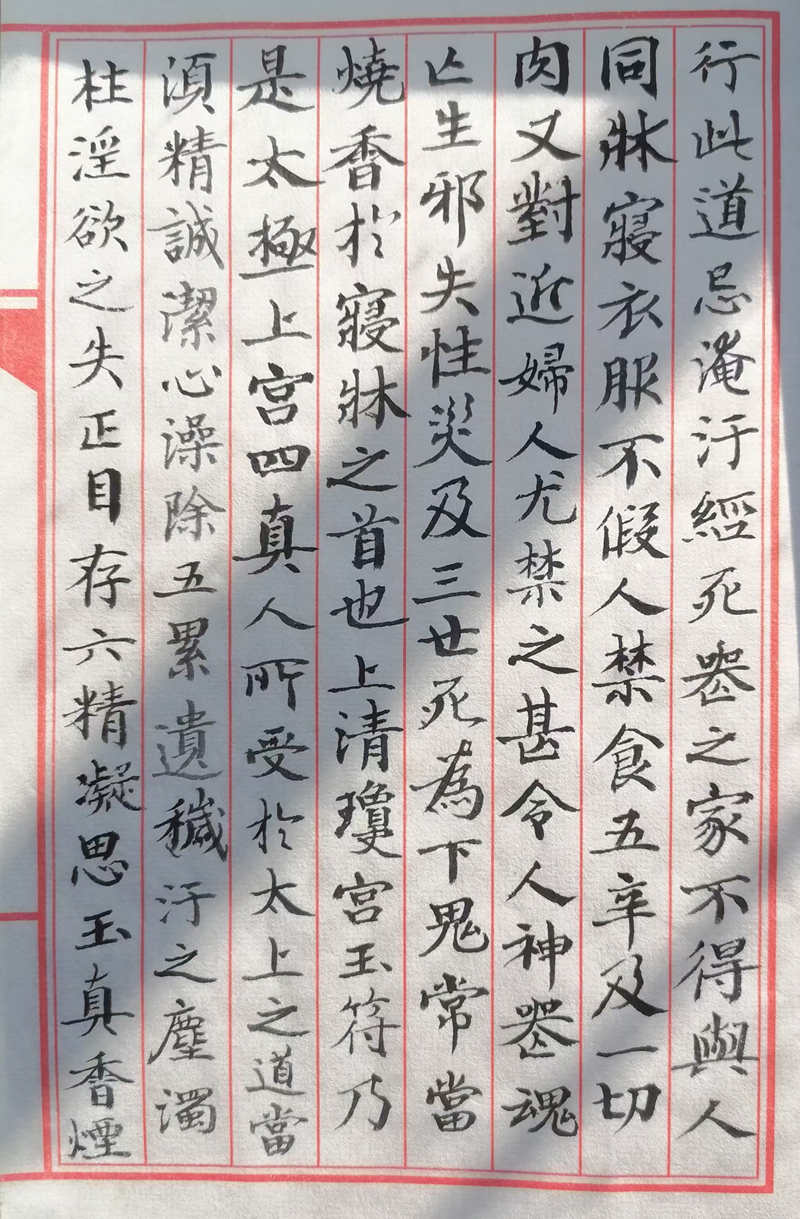 行此道忌淹汙經死丧之家不得與人
同牀寢衣服不假人禁食五辛及一切
肉又對近婦人尤禁之甚令人神丧魂
亡生邪失性災及三世死為下鬼常當
燒香於寢牀之首也上清瓊宮玉符乃
是太極上宮四真人所受於太上之道當
須精誠潔心澡除五累遺穢汙之塵濁
杜淫欲之失正目存六精凝思玉真香煙